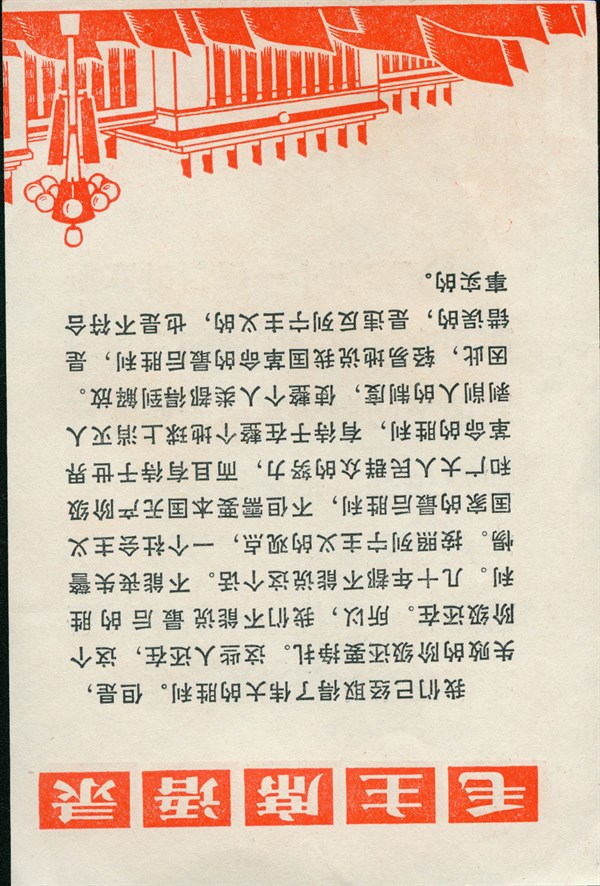 毛主席语录
我们已经取得了伟大的胜利。但是，
失败的阶级还要挣扎。这些人还在，这个
阶级还在。所以，我们不能说最后的胜
利。几十年都不能说这个话。不能丧失警
惕。按照列宁主义的观点，一个社会主义
国家的最后胜利，不但需要本国无产阶级
和广大人民群众的努力，而且有待于世界
革命的胜利，有待于在整个地球上消灭人
剥削人的制度，使整个人类都得到解放。
因此，轻易地说我国革命的最后胜利，是
错误的，是违反列宁主义的，也是不符合
事实的。